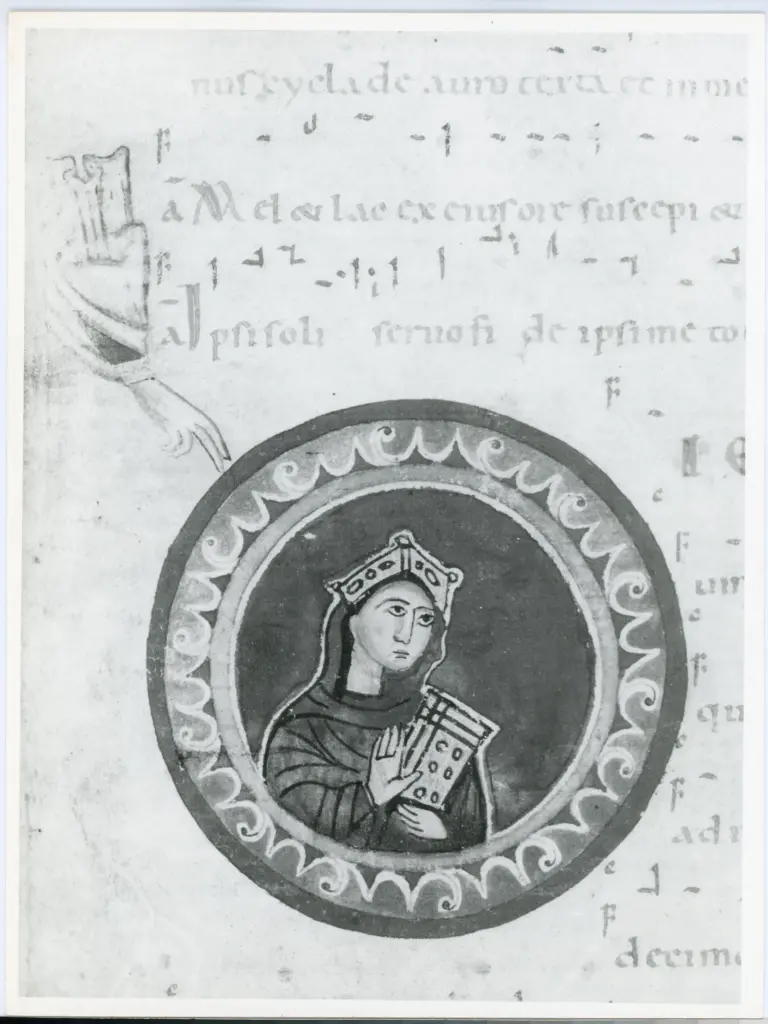 nus cyclade auro texta et inme
F
a Mel & lac ex eius ore suscepi &
F
a Ipsi soli seruo fi de ipsi me co
F
I
e
F
um
e
F
qu
e
F
ad
e
F
decimo
e